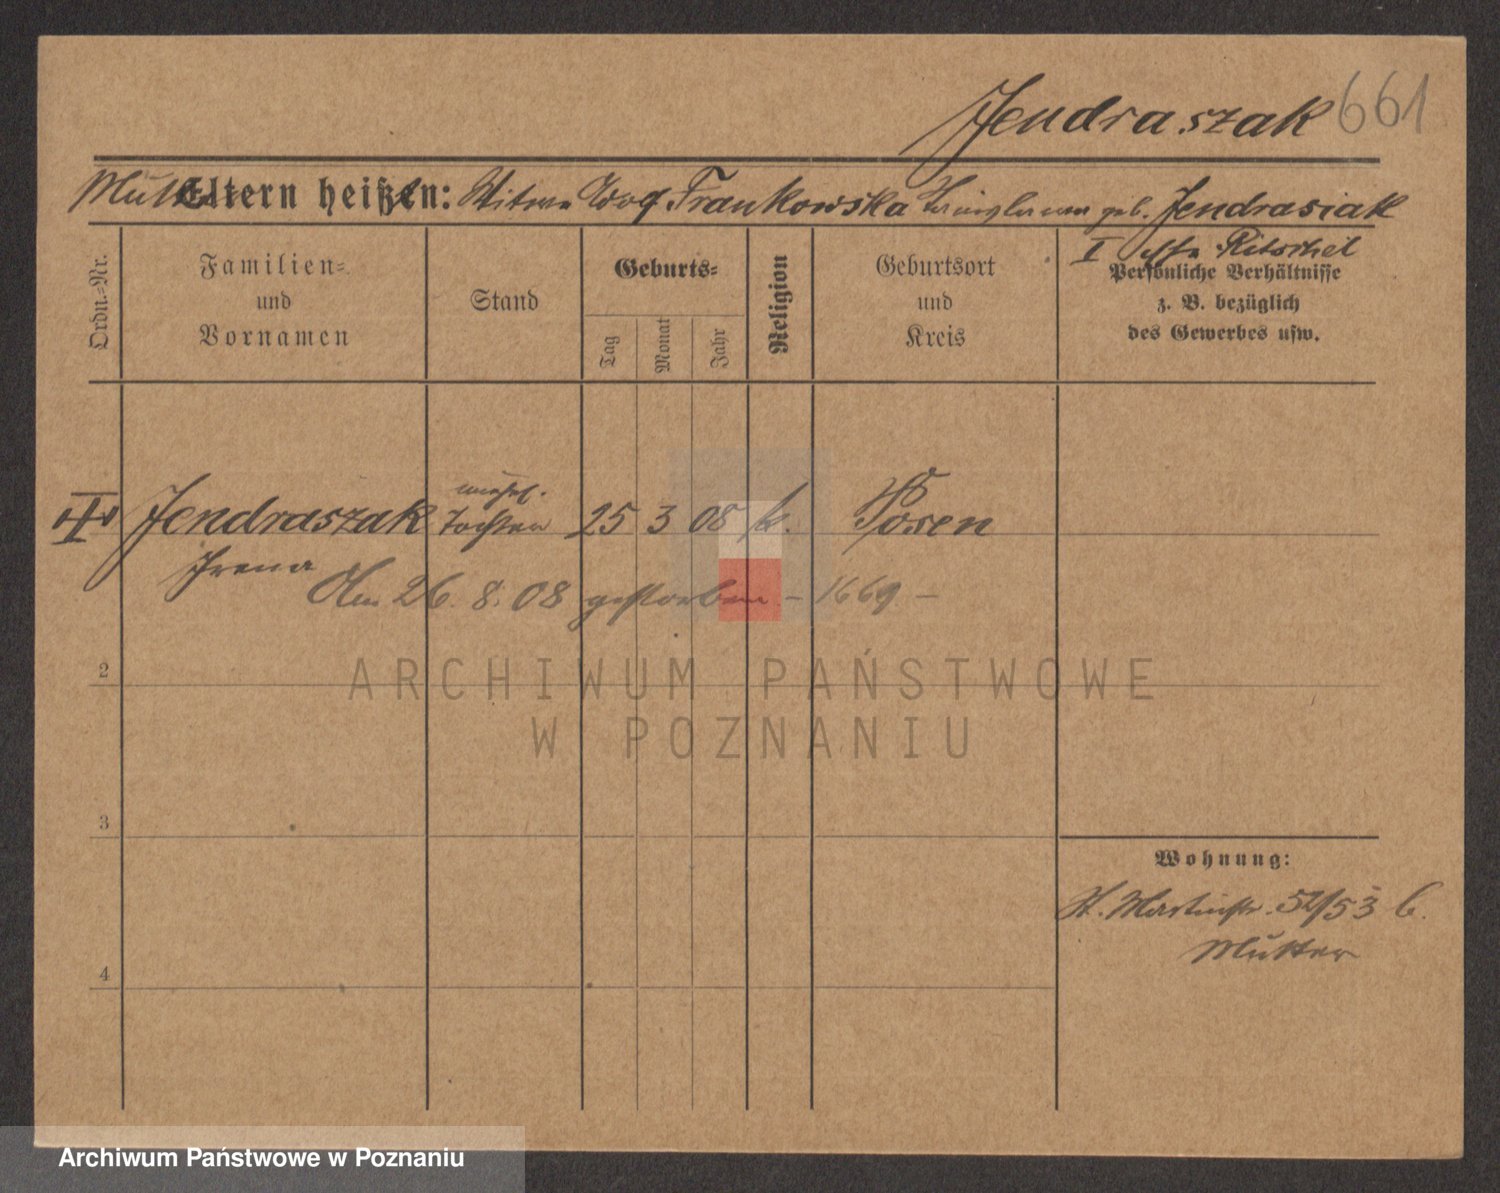 Jendraszak 661
Mutter Eltern heißen: Witwe Frankowska geb. Jendrasiak
I Ritschel
Ordn.-Nr.
Familien-
und
Vornamen
Stand
Geburts-
Tag
Monat
Jahr
Religion
Geburtsort
und
Kreis
Persönliche Verhältnisse
z. B. bezüglich
des Gewerbes usw.
unehel.
Jendraszak Tochter 25 3 08 k. Posen
Irena
Am 26. 8. 08 gestorben - 1669 -
2
3
4
Wohnung:
St. Martinstr. 52/53 b.
Mutter
ARCHIWUM PAŃSTWOWE
W POZNANIU
Archiwum Państwowe w Poznaniu